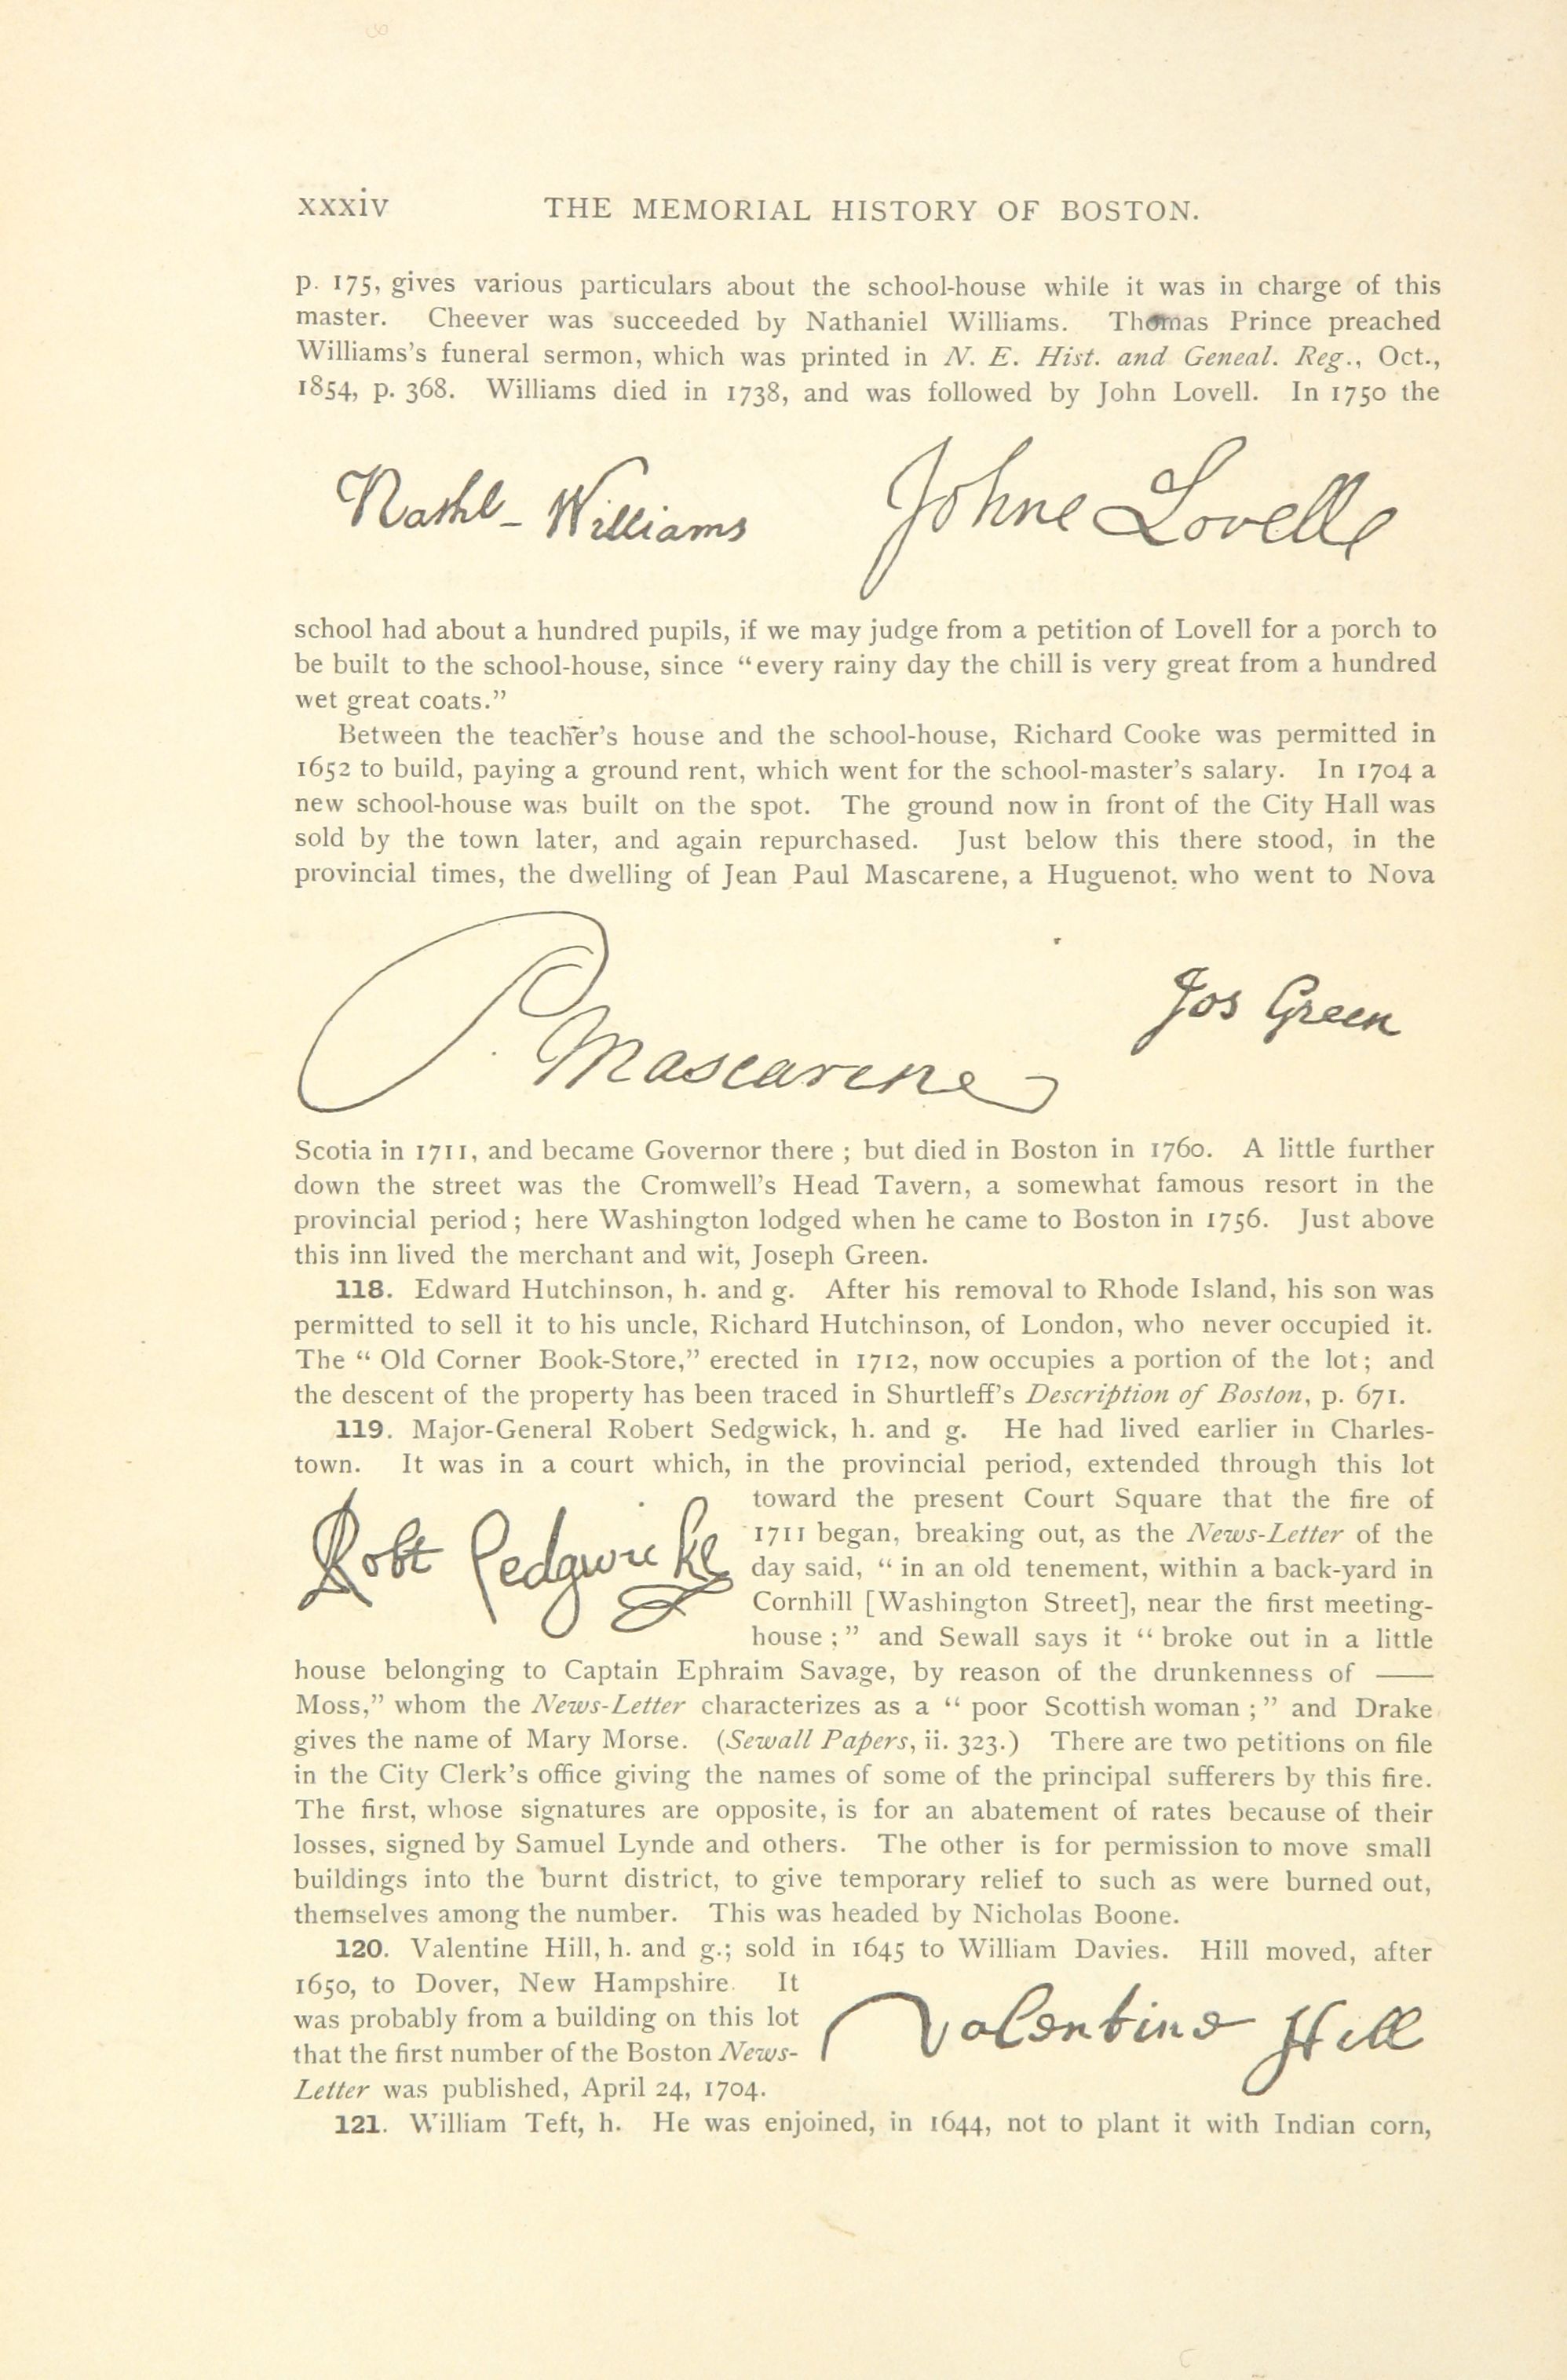 xxxiv THE MEMORIAL HISTORY OF BOSTON.
p. 175, gives various particulars about the school-house while it was in charge of this
master. Cheever was succeeded by Nathaniel Williams. Thomas Prince preached
Williams's funeral sermon, which was printed in N. E. Hist. and Geneal. Reg., Oct.,
1854, p. 368. Williams died in 1738, and was followed by John Lovell. In 1750 the
Nathl- Williams Johne Lovelle
school had about a hundred pupils, if we may judge from a petition of Lovell for a porch to
be built to the school-house, since "every rainy day the chill is very great from a hundred
wet great coats."
Between the teacher's house and the school-house, Richard Cooke was permitted in
1652 to build, paying a ground rent, which went for the school-master's salary. In 1704 a
new school-house was built on the spot. The ground now in front of the City Hall was
sold by the town later, and again repurchased. Just below this there stood, in the
provincial times, the dwelling of Jean Paul Mascarene, a Huguenot, who went to Nova
Jos Green
P. Mascarene
Scotia in 1711, and became Governor there ; but died in Boston in 1760. A little further
down the street was the Cromwell's Head Tavern, a somewhat famous resort in the
provincial period ; here Washington lodged when he came to Boston in 1756. Just above
this inn lived the merchant and wit, Joseph Green.
118. Edward Hutchinson, h. and g. After his removal to Rhode Island, his son was
permitted to sell it to his uncle, Richard Hutchinson, of London, who never occupied it.
The " Old Corner Book-Store," erected in 1712, now occupies a portion of the lot ; and
the descent of the property has been traced in Shurtleff's Description of Boston, p. 671.
119. Major-General Robert Sedgwick, h. and g. He had lived earlier in Charles-
town. It was in a court which, in the provincial period, extended through this lot
toward the present Court Square that the fire of
1711 began, breaking out, as the News-Letter of the
Robt Sedgwicke
day said, " in an old tenement, within a back-yard in
Cornhill [Washington Street], near the first meeting-
house ; " and Sewall says it " broke out in a little
house belonging to Captain Ephraim Savage, by reason of the drunkenness of ——
Moss," whom the News-Letter characterizes as a " poor Scottish woman ; " and Drake
gives the name of Mary Morse. (Sewall Papers, ii. 323.) There are two petitions on file
in the City Clerk's office giving the names of some of the principal sufferers by this fire.
The first, whose signatures are opposite, is for an abatement of rates because of their
losses, signed by Samuel Lynde and others. The other is for permission to move small
buildings into the burnt district, to give temporary relief to such as were burned out,
themselves among the number. This was headed by Nicholas Boone.
120. Valentine Hill, h. and g.; sold in 1645 to William Davies. Hill moved, after
1650, to Dover, New Hampshire. It
was probably from a building on this lot
Valentine Hill
that the first number of the Boston News-
Letter was published, April 24, 1704.
121. William Teft, h. He was enjoined, in 1644, not to plant it with Indian corn,